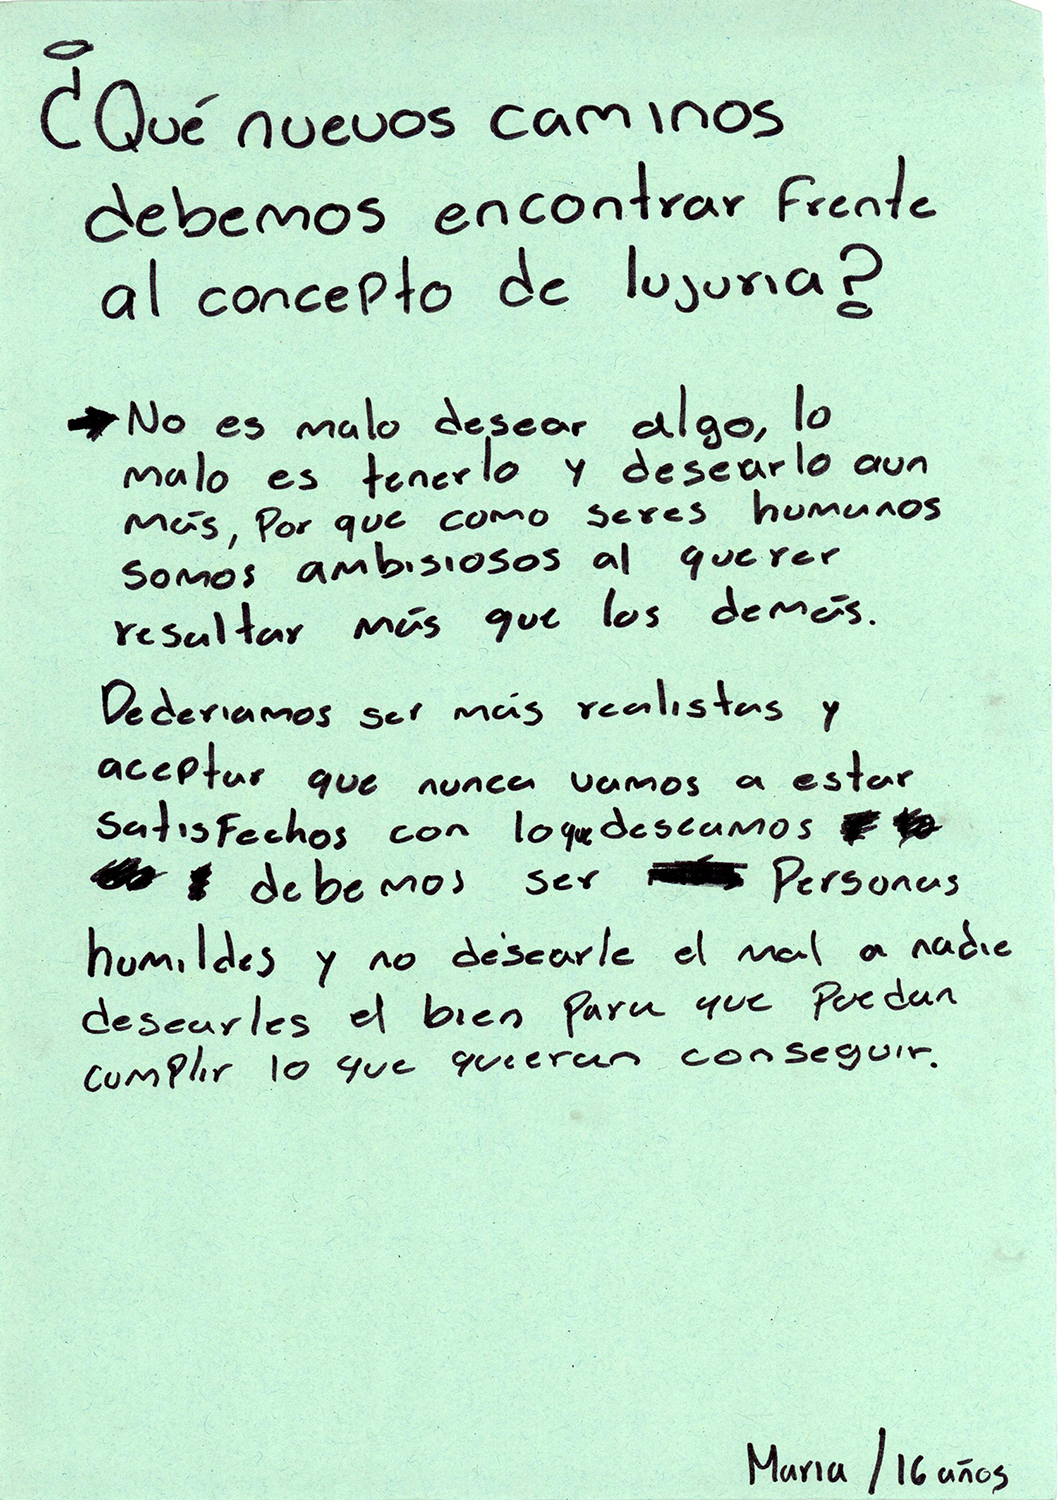 ¿Qué nuevos caminos
debemos encontrar frente
al concepto de lujuria?
No es malo desear algo, lo
malo es tenerlo y desearlo aun
más, por que como seres humanos
somos ambisiosos al querer
resaltar más que los demás.
Dederiamos ser más realistas y
aceptar que nunca vamos a estar
satisfechos con lo que deseamos
debemos ser personas
humildes y no desearle el mal a nadie
desearles el bien para que puedan
cumplir lo que quieran conseguir.
Maria / 16 años